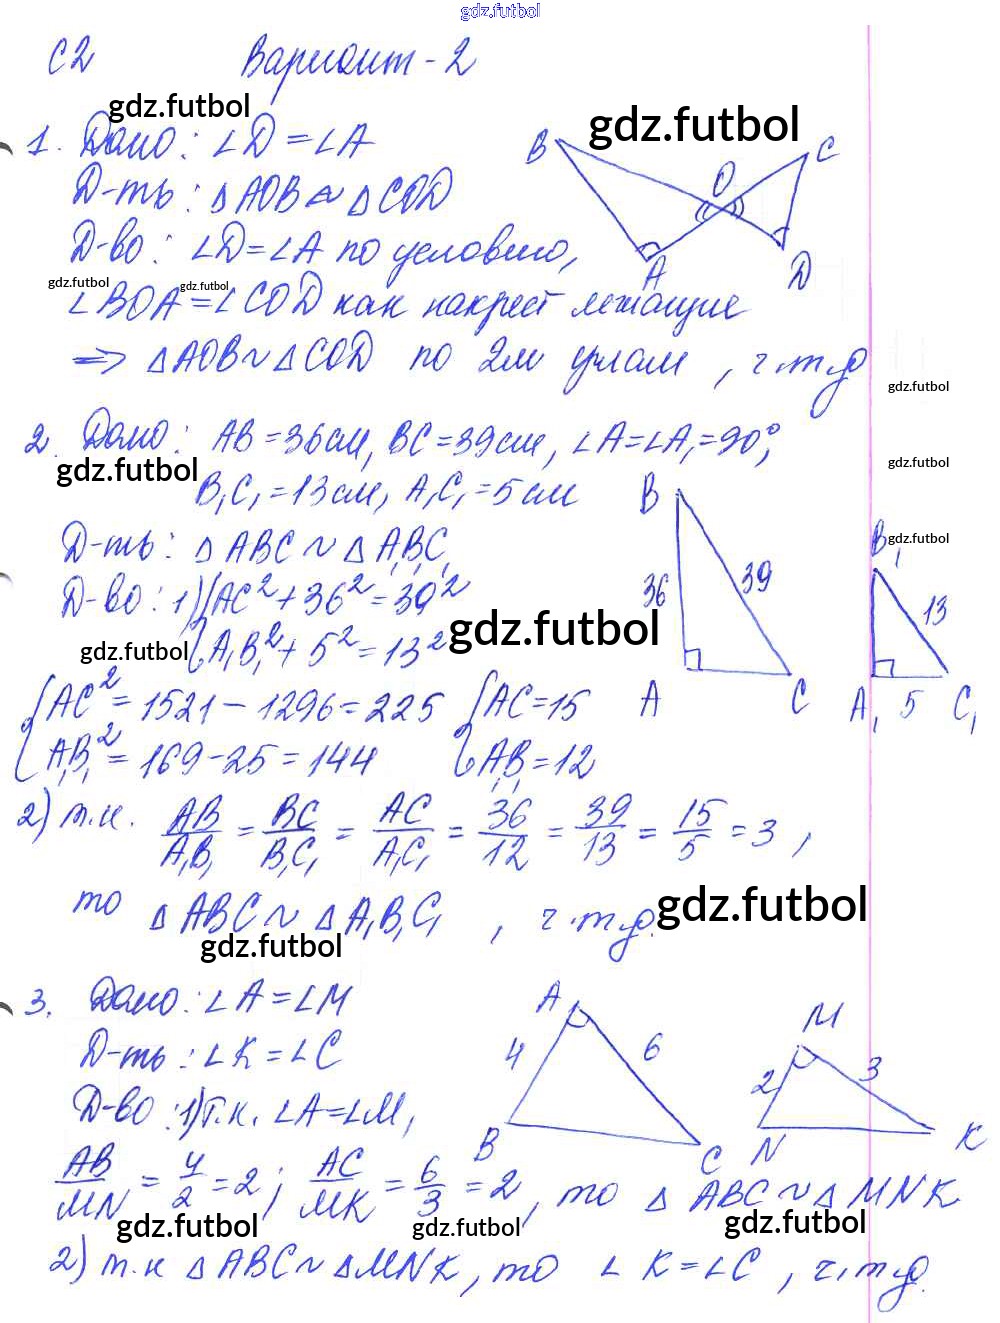 gdz.futbol
С2 Вариант - 2
gdz.futbol
gdz.futbol
1. Дано: ∠D = ∠A
B O C A D
Д-ть: △AOB ~ △COD
Д-во: ∠D = ∠A по условию,
gdz.futbol gdz.futbol
∠BOA = ∠COD как накрест лежащие
=> △AOB ~ △COD по 2м углам, ч.т.д
gdz.futbol
2. Дано: AB = 36см, BC = 39см, ∠A = ∠A₁ = 90°,
gdz.futbol gdz.futbol
B₁C₁ = 13см, A₁C₁ = 5см
B 36 39 A C
B₁ 13 A₁ 5 C₁
gdz.futbol
Д-ть: △ABC ~ △A₁B₁C₁
Д-во: 1) { AC² + 36² = 39²
A₁B₁² + 5² = 13²
gdz.futbol gdz.futbol
{ AC² = 1521 - 1296 = 225 { AC = 15
A₁B₁² = 169 - 25 = 144 A₁B₁ = 12
2) т.к. AB/A₁B₁ = BC/B₁C₁ = AC/A₁C₁ = 36/12 = 39/13 = 15/5 = 3,
то △ABC ~ △A₁B₁C₁, ч.т.д.
gdz.futbol
gdz.futbol
3. Дано: ∠A = ∠M
A 4 6 B C
M 2 3 N K
Д-ть: ∠K = ∠C
Д-во: 1) т.к. ∠A = ∠M,
AB/MN = 4/2 = 2; AC/MK = 6/3 = 2, то △ABC ~ △MNK
gdz.futbol gdz.futbol gdz.futbol
2) т.к △ABC ~ △MNK, то ∠K = ∠C, ч.т.д.